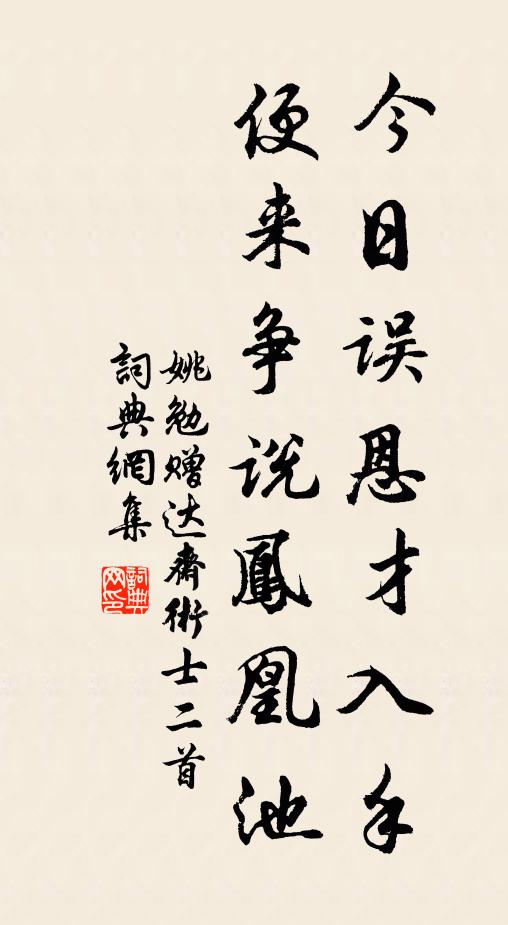 今日误恩才入手
便来争说鳳凰池
姚勉赠达齋術士二首
詞典網集
詞典
网印